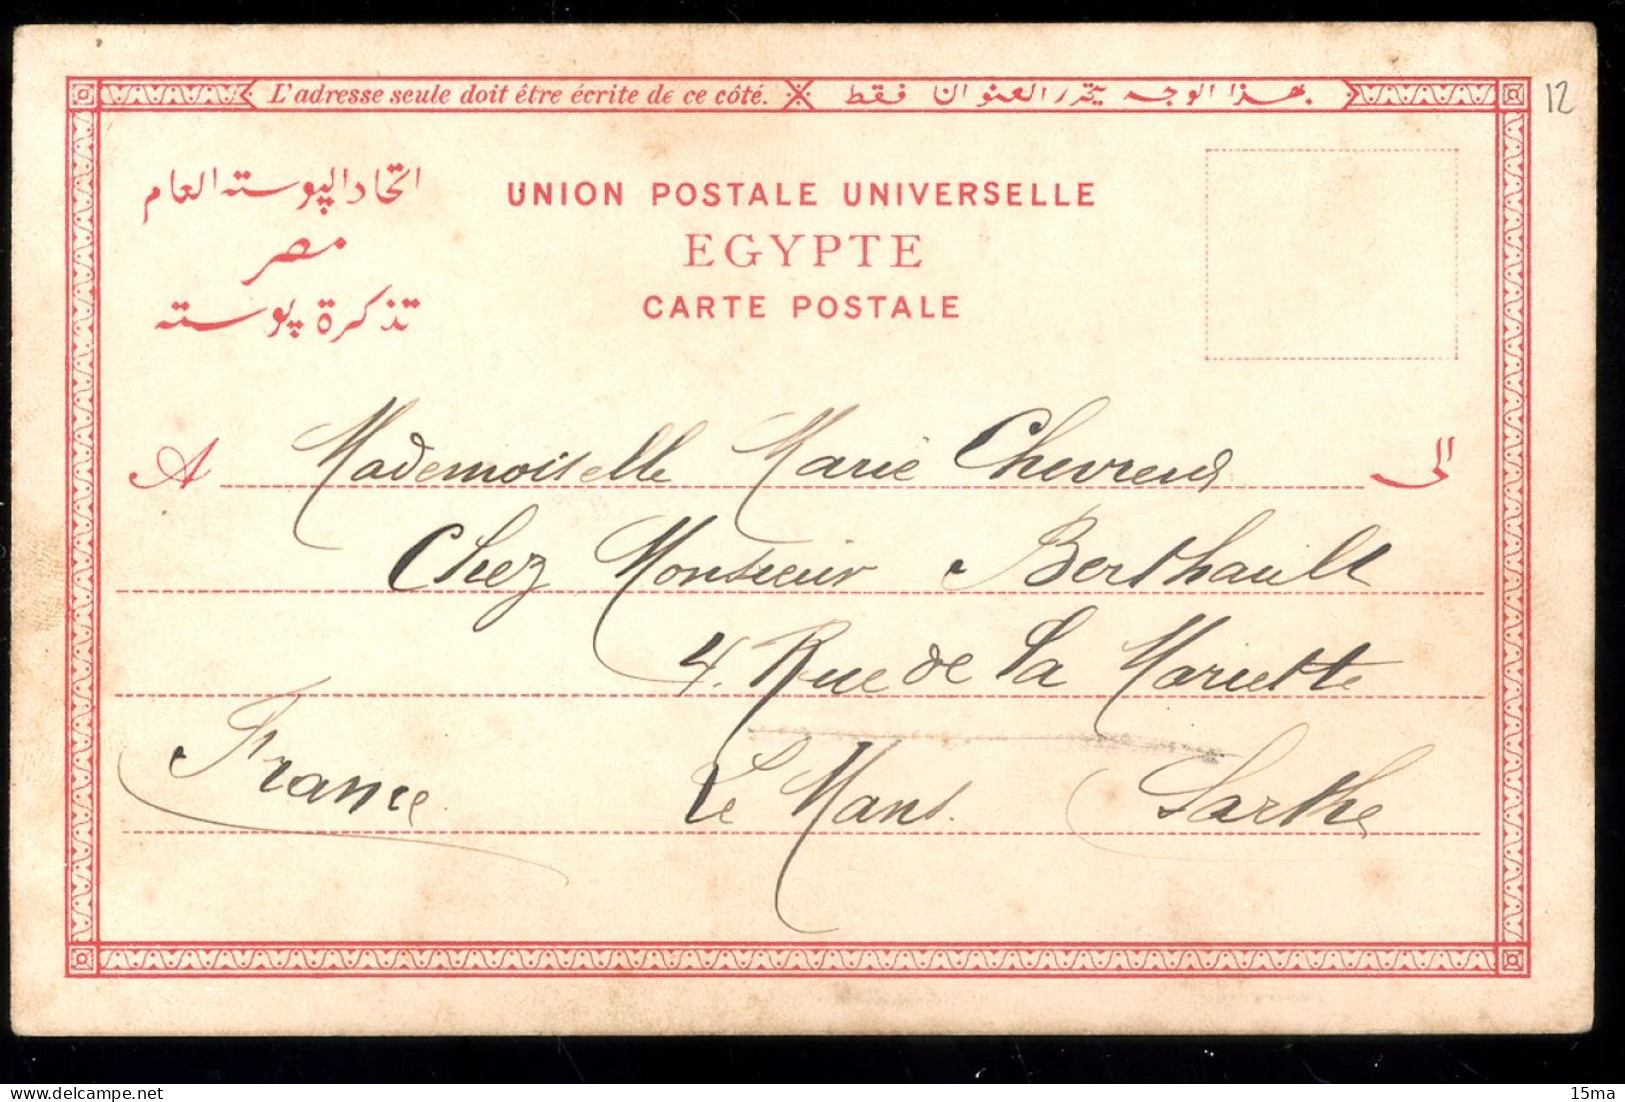 L'adresse seule doit être écrite de ce côté. بهذا الوجه يتحرر العنوان فقط
12
اتحاد البوسته العام
UNION POSTALE UNIVERSELLE
مصر
EGYPTE
تذكرة بوسته
CARTE POSTALE
A Mademoiselle Marie الى
Chez Monsieur Berthault
4. Rue de la Mariette
France Le Mans. Sarthe
delcampe.net
15ma